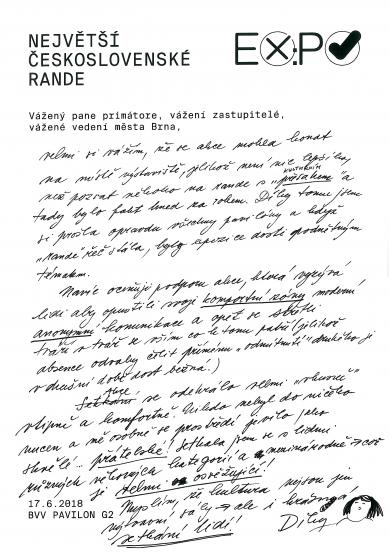 NEJVĚTŠÍ
ČESKOSLOVENSKÉ
RANDE
EXPO
Vážený pane primátore, vážení zastupitelé,
vážené vedení města Brna,
velmi si vážím, že se akce mohla konat
na místě výstaviště, jelikož není nic lepšího,
než pozvat někoho na rande s "kulturním
přesahem" a
tady bylo fakt hned za rohem. Díky tomu jsem
si prošla opravdu všechny pavilony a když
"rande řeč" stála, byly expozice dosti podnětným
tématem.
Navíc oceňuji podporu akce, která vyzývá
lidi aby opustili svoji komfortní zónu moderní
anonymní komunikace a opět se střetli
tváří v tvář se vším co k tomu patří (jelikož
absence odvahy čelit přímému "odmítnutí" druhého je
v dnešní době dost běžná.)
Akce
se odehrála velmi
vtipně a komfortně. Nikdo nebyl do ničeho
nucen a mě osobně se prostředí jevilo jako
skvělé... přátelské! Setkala jsem se s lidmi
různých věkových kategorií a mimořádně
je velmi osvěžující!
Myslím, že kultura nejsou jen
výtvarní, ale i
setkání lidí!
Díky
17.6.2018
BVV PAVILON G2